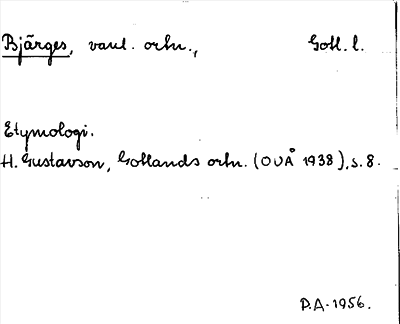 Bjärges, vanl. ortn., Gotl. l.
Etymologi.
H. Gustavson, Gotlands ortn. (OUÅ 1938), s. 8.
P.A. 1956.